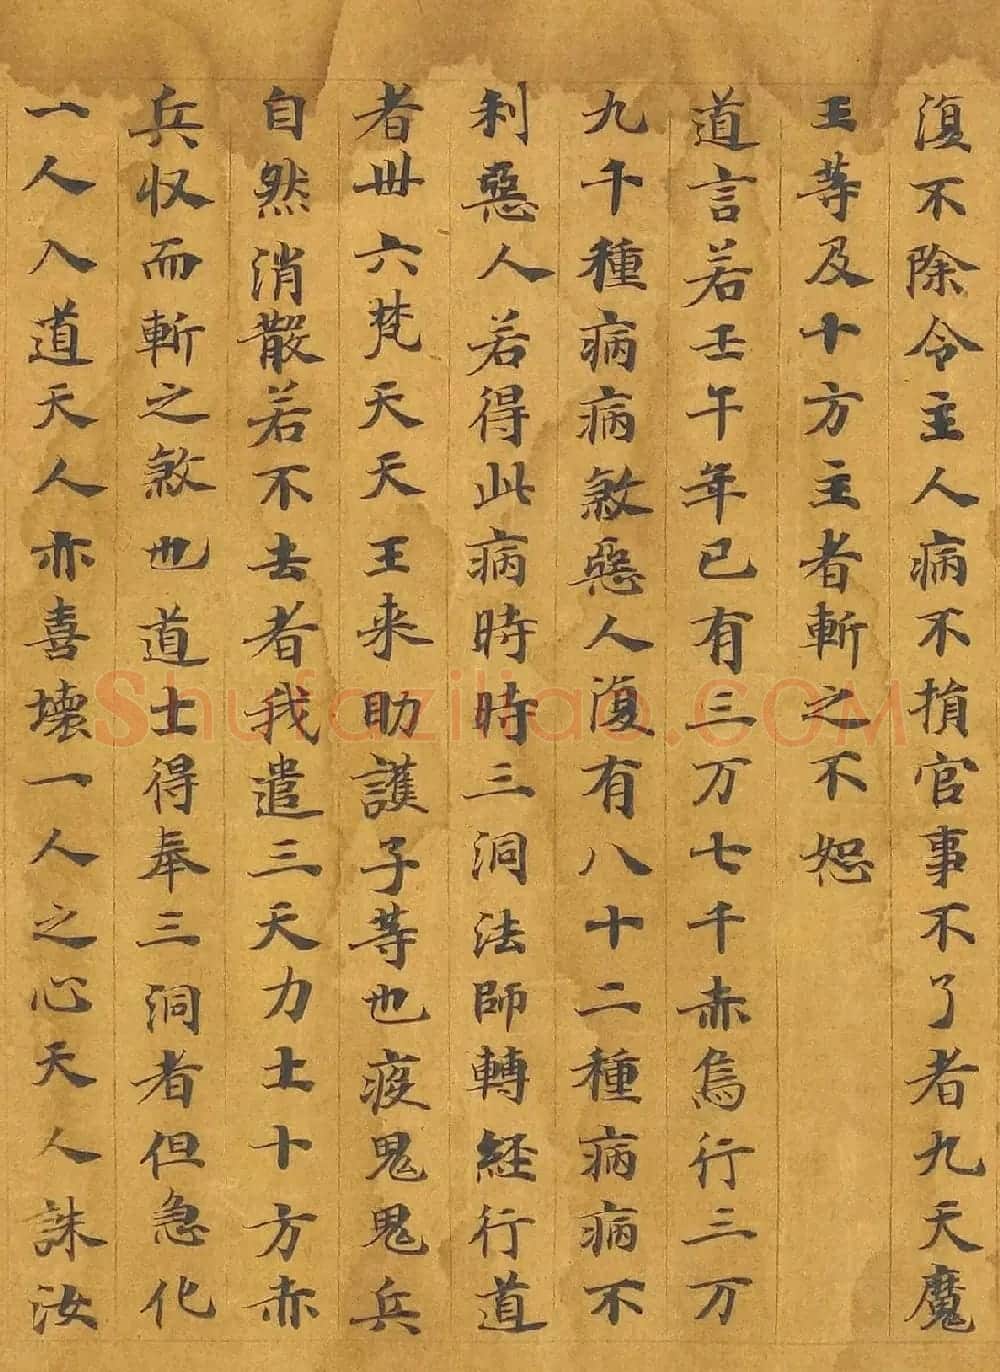 復不除令主人病不損官事不了者九天魔
王等及十方主者斬之不恕
道言若壬午年已有三万七千赤烏行三万
九千種病病煞惡人復有八十二種病病不
利惡人若得此病時時三洞法師轉経行道
者卌六梵天天王来助護子等也疫鬼鬼兵
自然消散若不去者我遣三天力士十方赤
兵収而斬之煞也道士得奉三洞者但急化
一人入道天人亦喜壊一人之心天人誅汝
Shufaziliao.COM